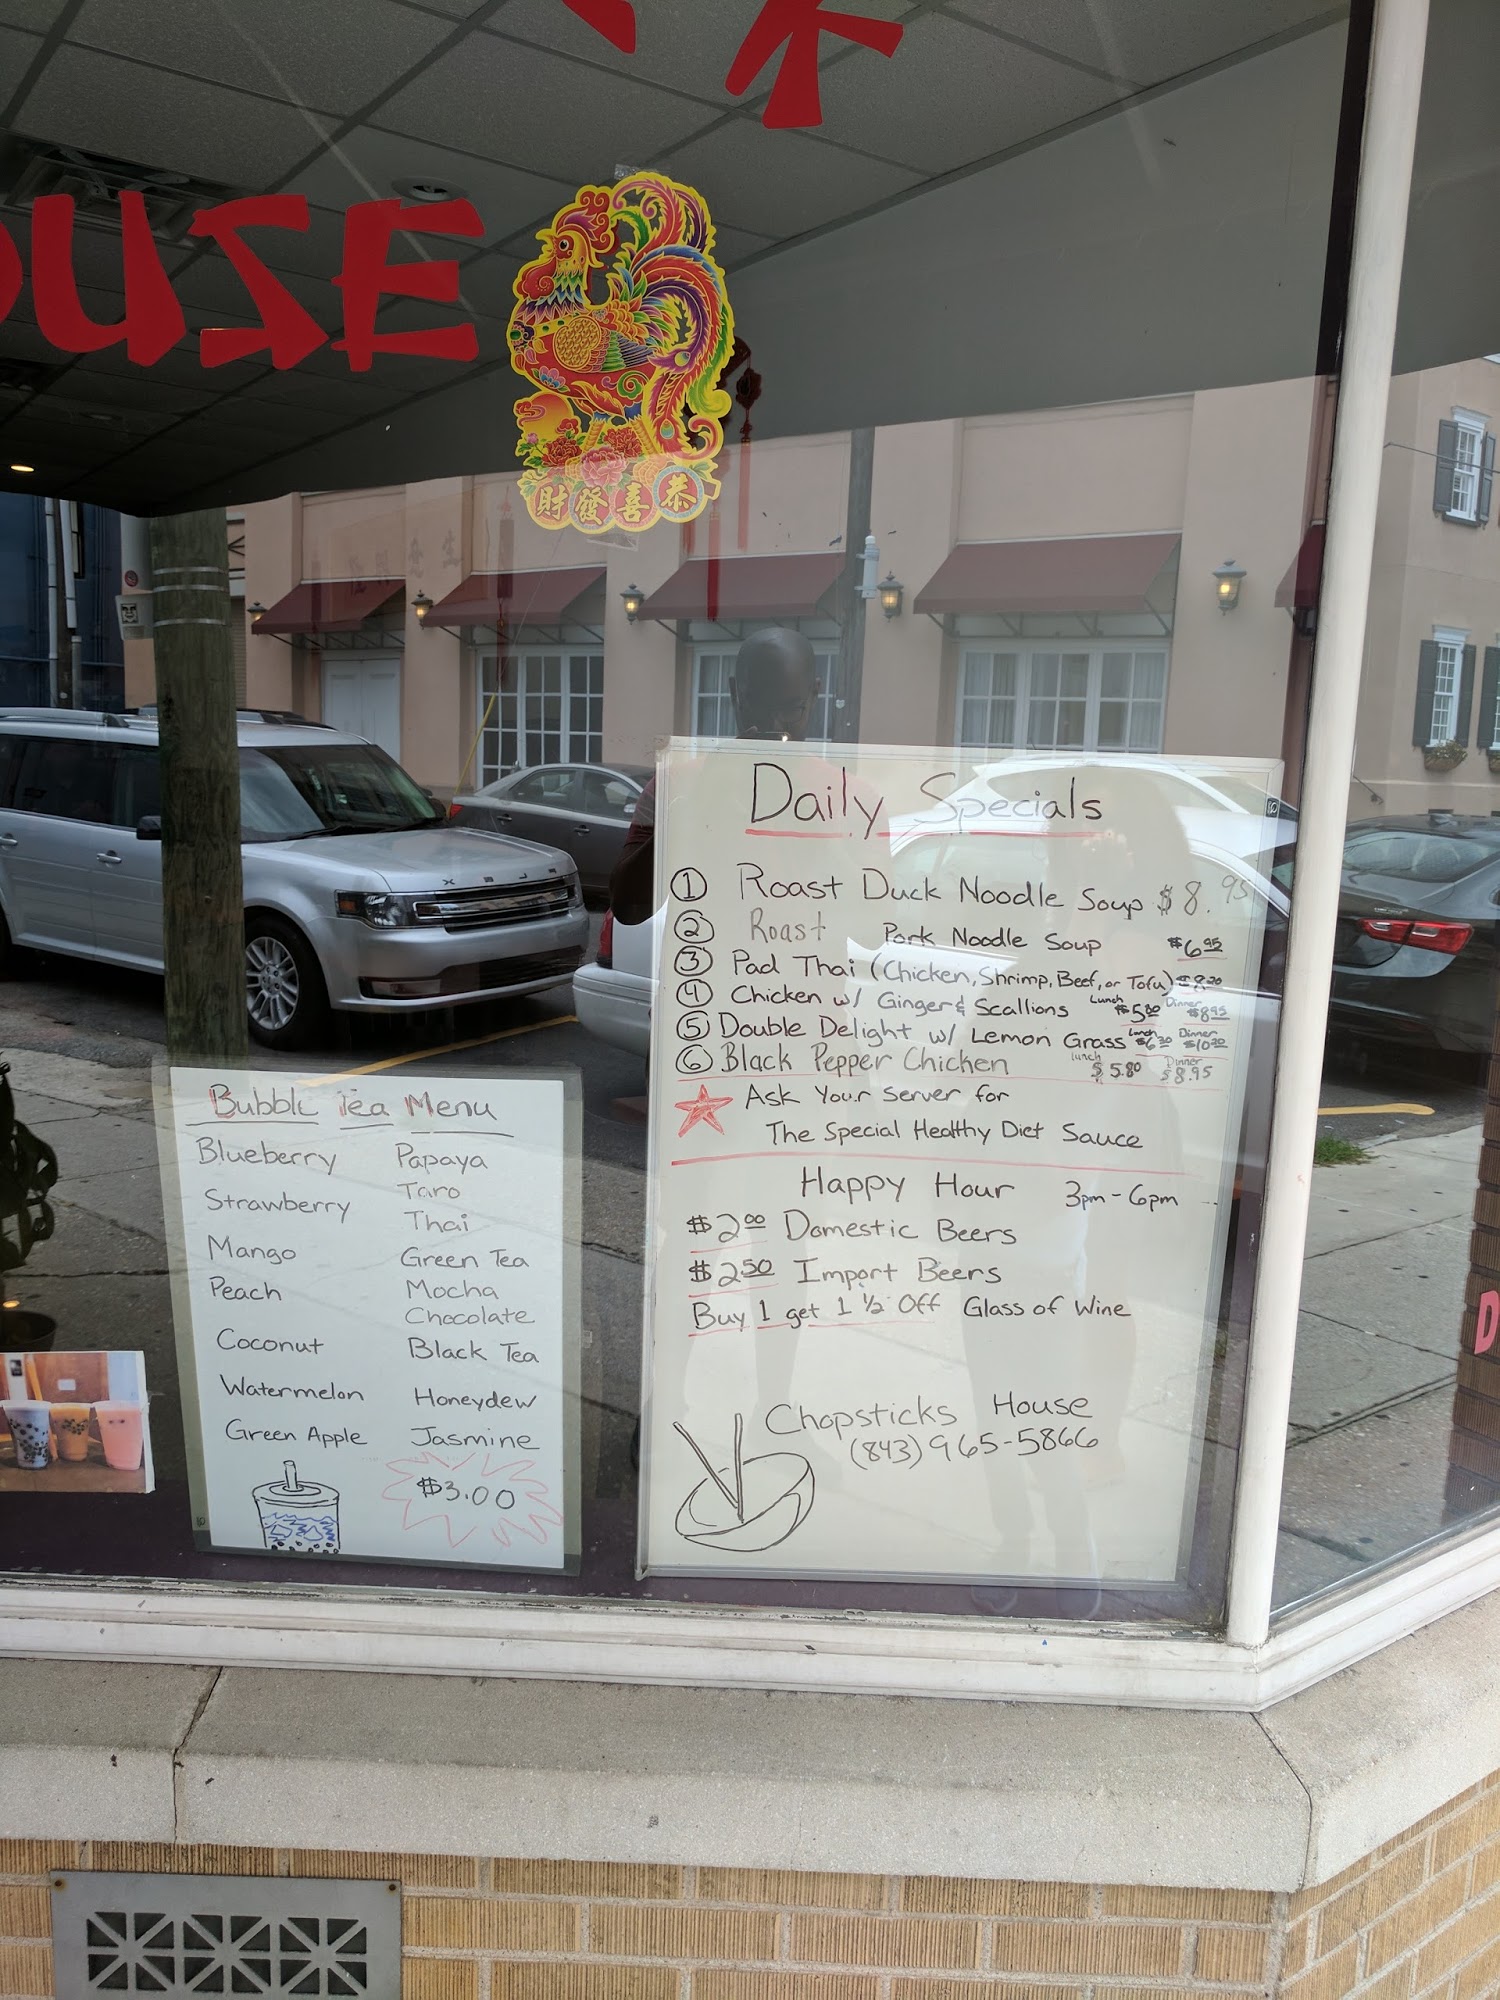 OUSE
財發喜恭
Daily Specials
1 Roast Duck Noodle Soup $8.95
2 Roast Pork Noodle Soup $6.95
3 Pad Thai (Chicken, Shrimp, Beef, or Tofu)
4 Chicken w/ Ginger & Scallions Lunch $5.80 Dinner $8.95
5 Double Delight w/ Lemon Grass Lunch Dinner
6 Black Pepper Chicken Lunch $5.80 Dinner $8.95
Ask Your server for
The Special Healthy Diet Sauce
Happy Hour 3pm-6pm
$2.00 Domestic Beers
$2.50 Import Beers
Buy 1 get 1 1/2 Off Glass of Wine
Chopsticks House
(843) 965-5866
Bubble Tea Menu
Blueberry
Strawberry
Mango
Peach
Coconut
Watermelon
Green Apple
Papaya
Taro
Thai
Green Tea
Mocha
Chocolate
Black Tea
Honeydew
Jasmine
$3.00
D